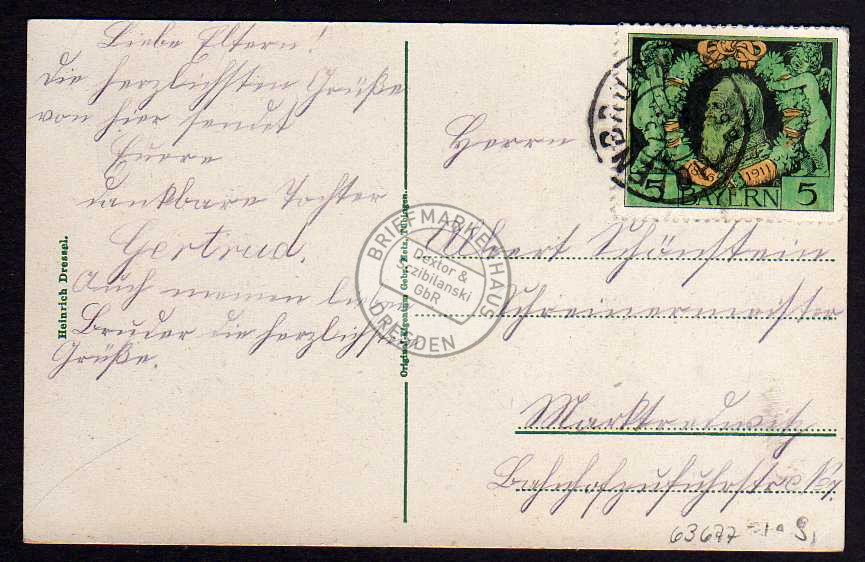 Liebe Eltern!
die herzlichsten Grüße
von hier sendet
Euere
dankbare Tochter
Gertrud.
Auch meinem
Bruder die herzlichsten
Grüße.
Heinrich Dressel.
Original-Eigentum Gebr. Metz, Tübingen.
BRIEFMARKENHAUS
Dextor &
Szibilanski
GbR
DRESDEN
1911
5 BAYERN 5
Herrn
Albert Schönstein
Schreinermeister
Marktredwitz
Bahnhofzufuhrstr. No 7.
63677